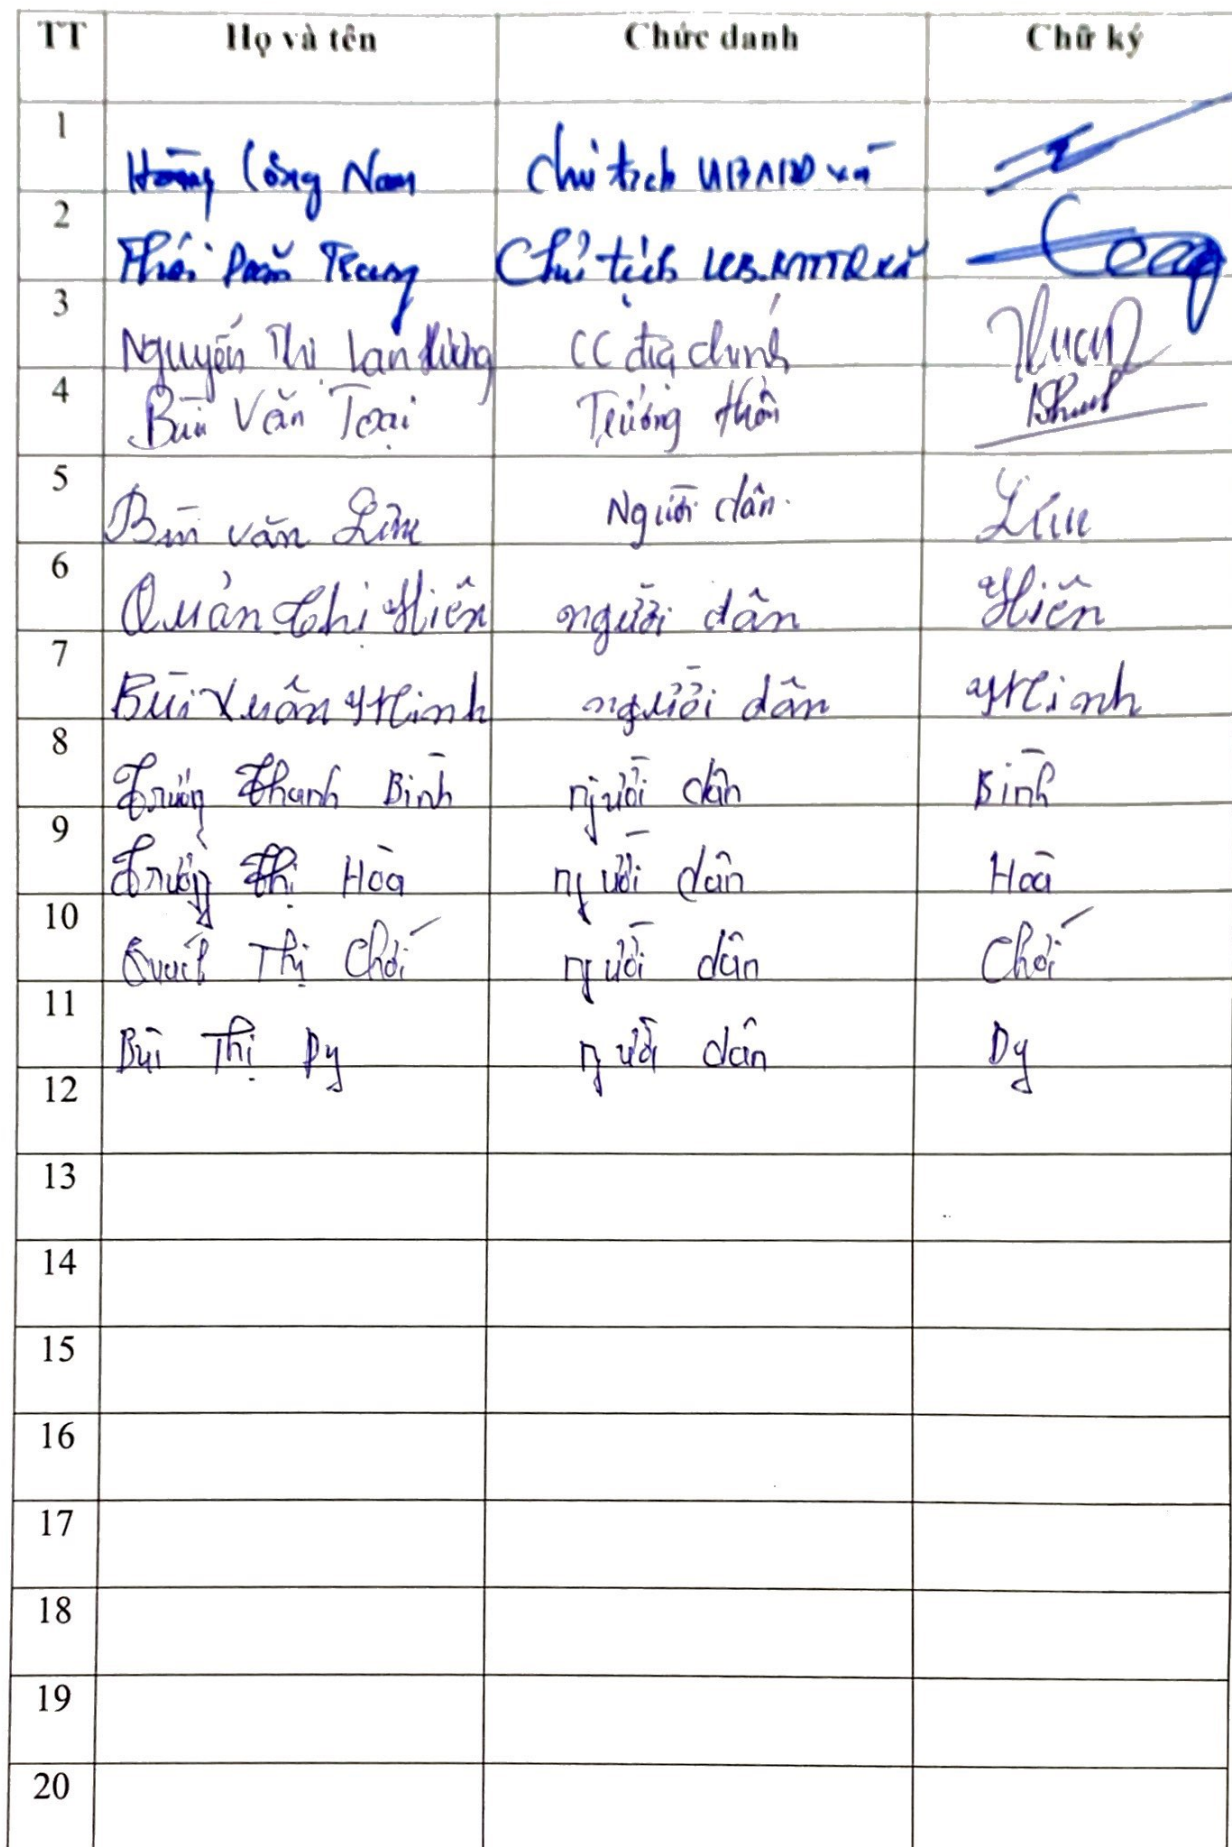 TT Họ và tên Chức danh Chữ ký
1 Hoàng Công Nam Chủ tịch UBND xã
2 Thái Trung Chủ tịch UB.MTTQ xã
3 Nguyễn Thị Lan Hương CC địa chính
4 Bùi Văn Toại Trưởng thôn
5 Bùi Văn Lim Người dân Lim
6 Quản Thị Hiền người dân Hiền
7 Bùi Xuân Hinh người dân Hinh
8 Trương Thanh Bình người dân Bình
9 Trương Thị Hòa người dân Hòa
10 Quách Thị Chới người dân Chới
11 Bùi Thị Dy người dân Dy
12
13
14
15
16
17
18
19
20